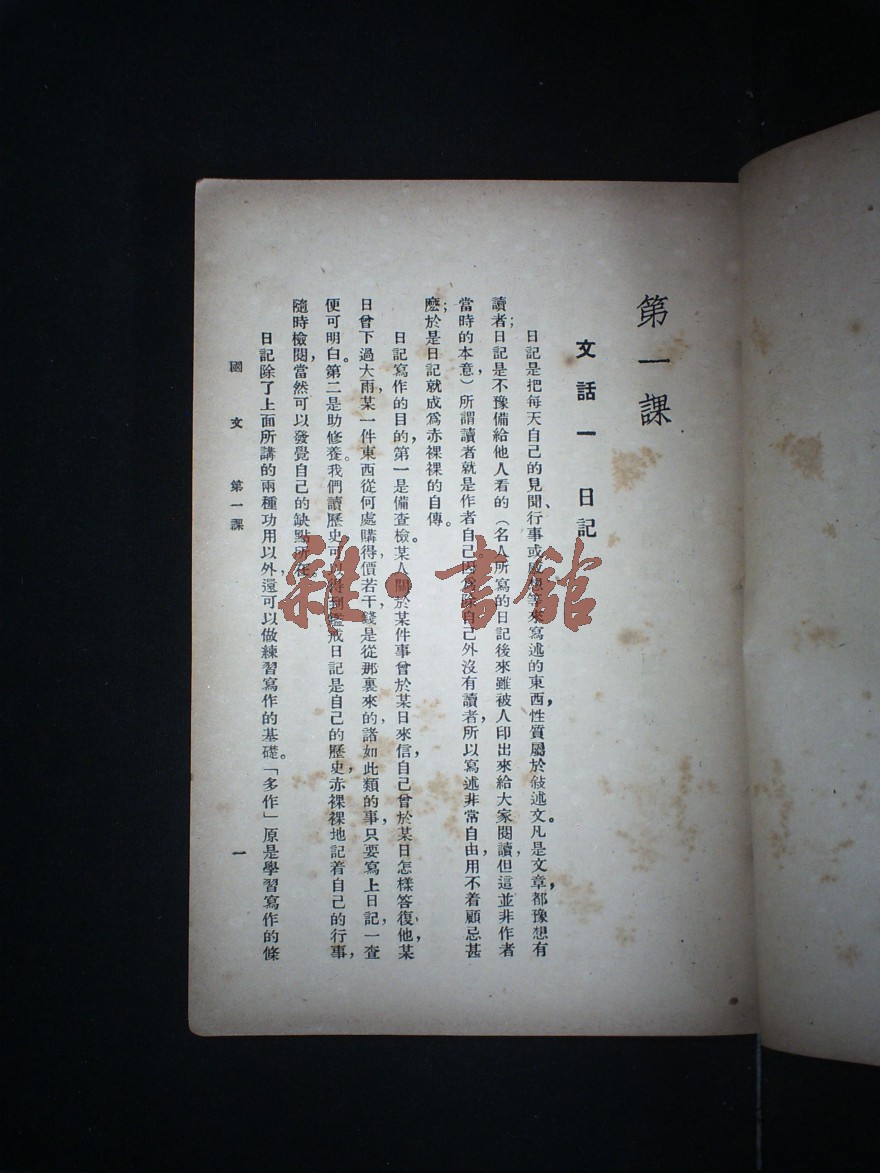 第一課
文話一 日記
日記是把每天自己的見聞、行事或感想等來寫述的東西，性質屬於敍述文。凡是文章，都豫想有
讀者；日記是不豫備給他人看的（名人所寫的日記後來雖被人印出來給大家閱讀，但這並非作者
當時的本意），所謂讀者就是作者自己。因爲除自己外沒有讀者，所以寫述非常自由，用不着顧忌甚
麽；於是日記就成爲赤裸裸的自傳。
日記寫作的目的，第一是備查檢。某人關於某件事曾於某日來信，自己曾於某日怎樣答復他，某
日曾下過大雨，某一件東西從何處購得，價若干，錢是從那裏來的，諸如此類的事，只要寫上日記，一查
便可明白。第二是助修養。我們讀歷史可以得到鑑戒，日記是自己的歷史，赤裸裸地記着自己的行事，
隨時檢閱，當然可以發覺自己的缺點所在。
日記除了上面所講的兩種功用以外，還可以做練習寫作的基礎。「多作」原是學習寫作的條
國文 第一課 一
雜·書館